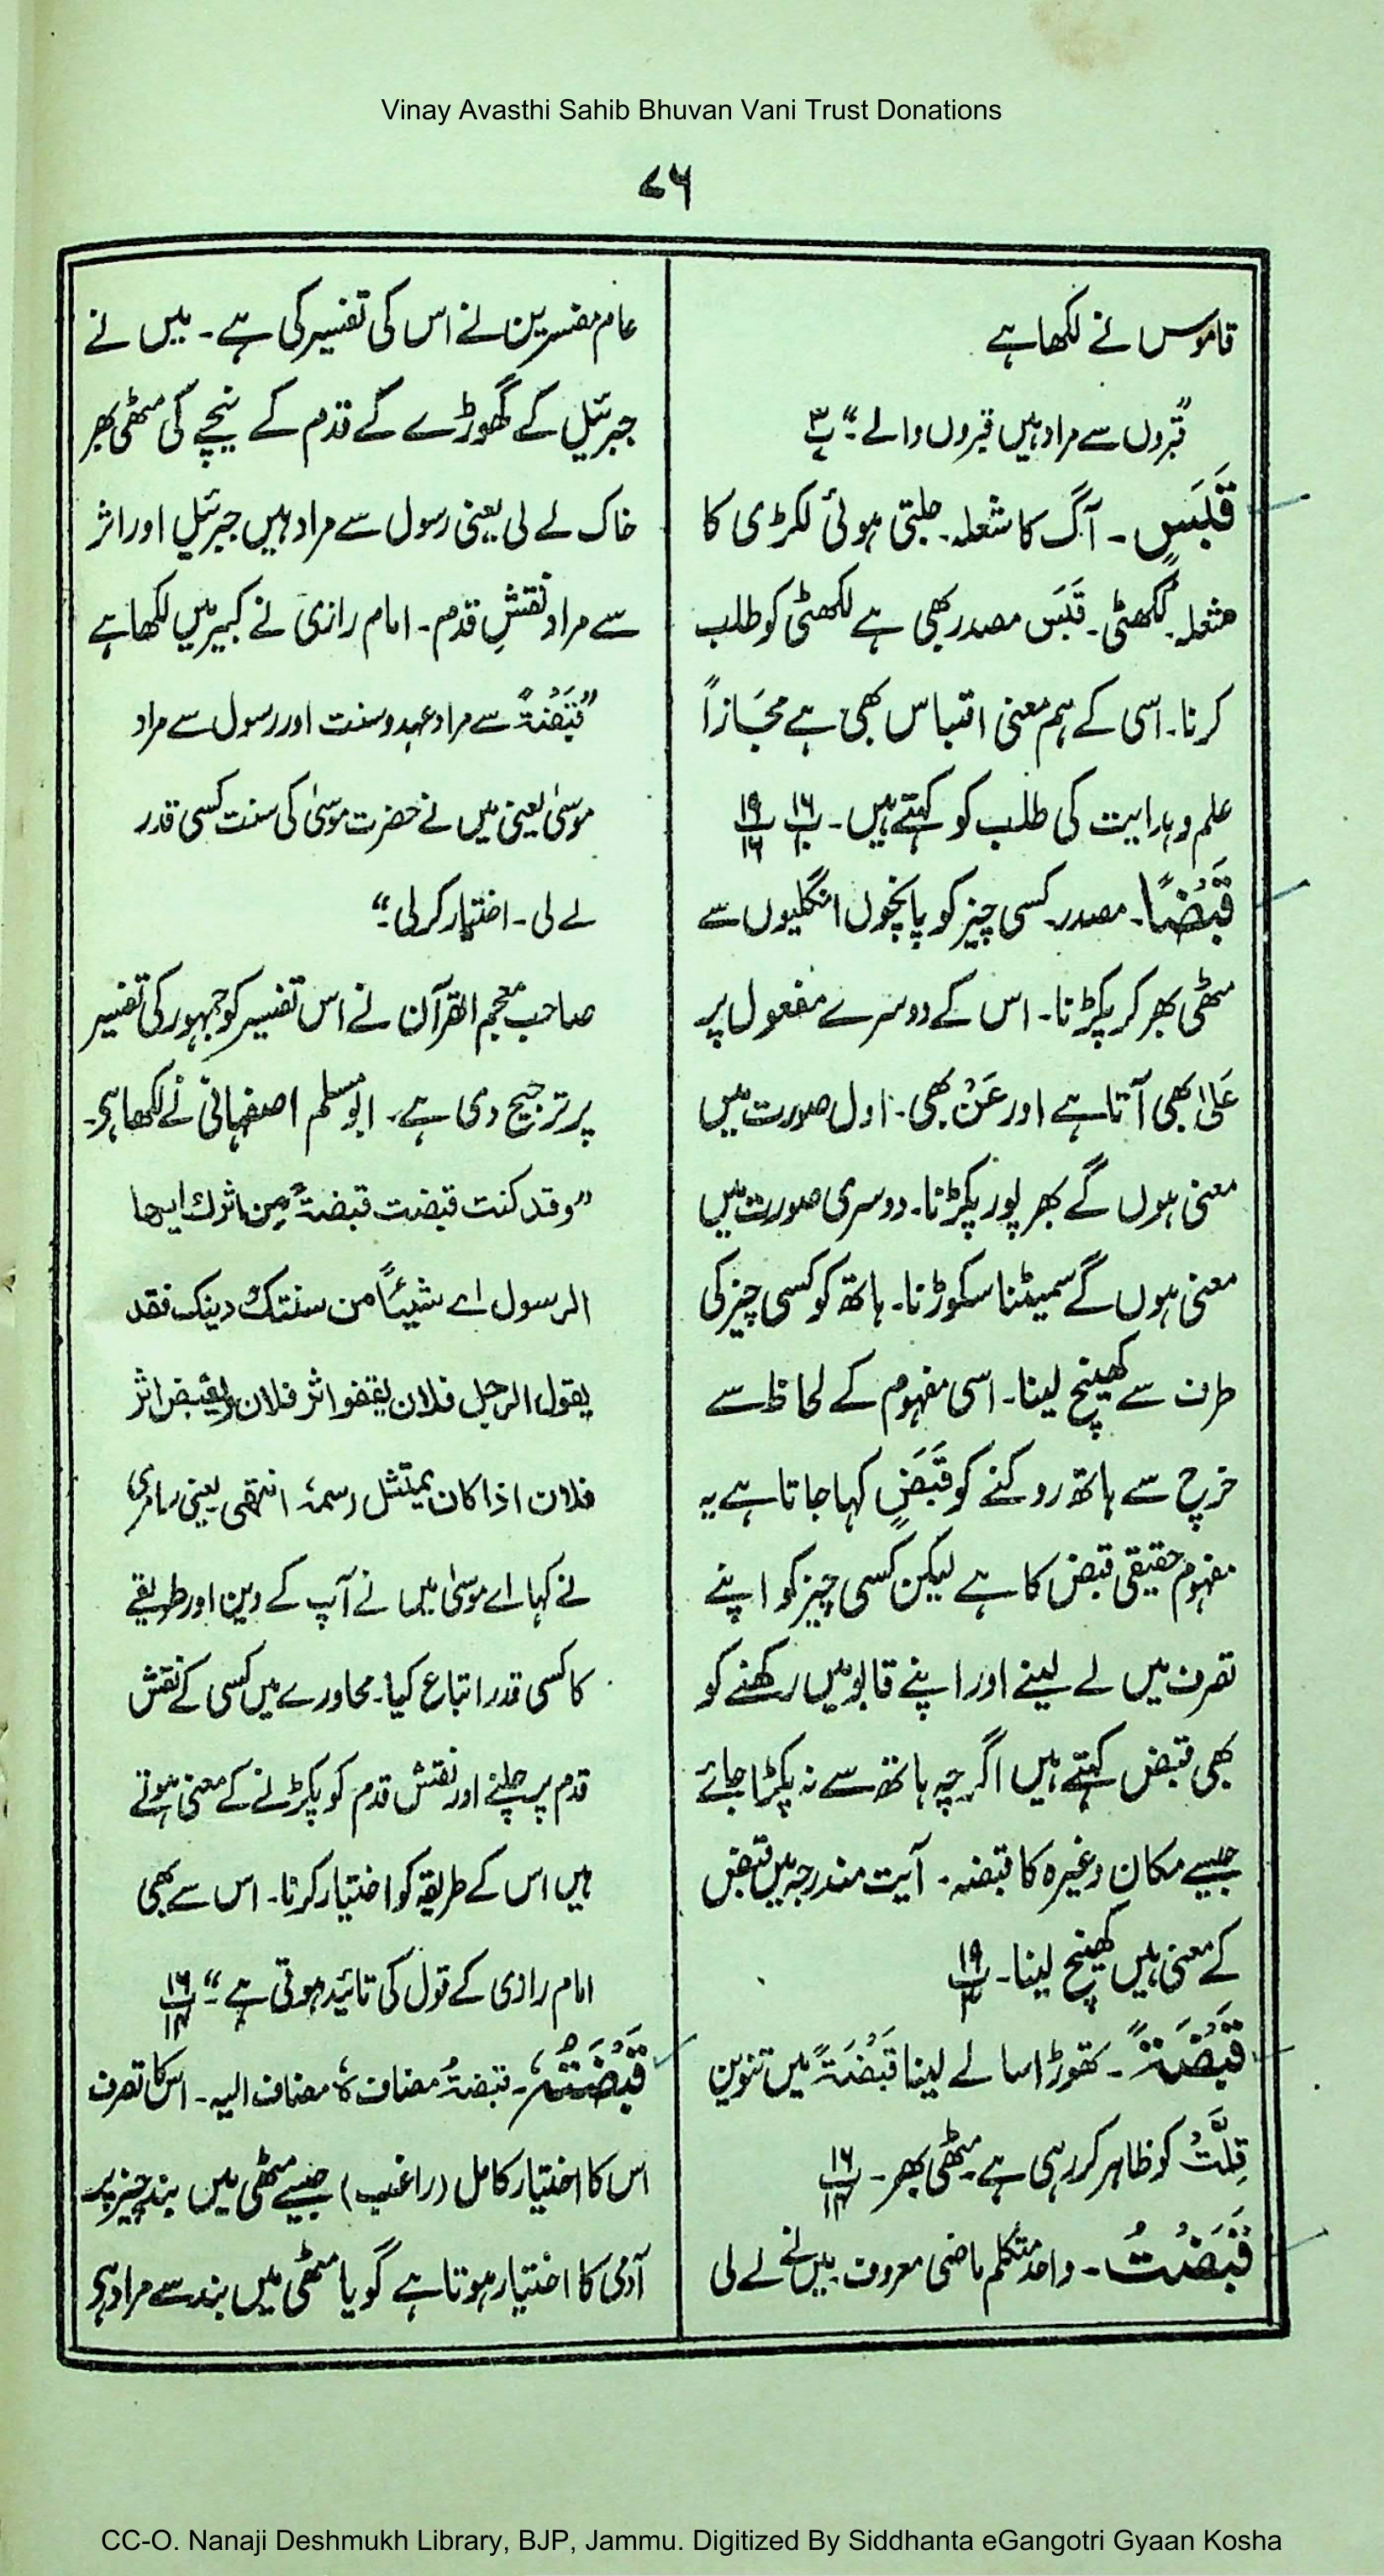 Vinay Avasthi Sahib Bhuvan Vani Trust Donations
۷۶
قاموس نے لکھا ہے
"قبروں سے مراد ہیں قبروں والے"۔
قَبَسٍ۔ آگ کا شعلہ۔ جلتی ہوئی لکڑی کا
شعلہ۔ لکھٹی۔ قَبَس مصدر بھی ہے لکھٹی کو طلب
کرنا۔ اسی کے ہم معنی اقتباس بھی ہے مَجَازاً
علم و ہدایت کی طلب کو کہتے ہیں۔ پ۱۶/۱۰ پ۱۹/۱۶
قَبْضًا۔ مصدر۔ کسی چیز کو پانچوں انگلیوں سے
مٹھی بھر کر پکڑنا۔ اس کے دوسرے مفعول پر
عَلیٰ بھی آتا ہے اور عَنْ بھی۔ اول صورت میں
معنی ہوں گے بھرپور پکڑنا۔ دوسری صورت میں
معنی ہوں گے سمیٹنا سکوڑنا۔ ہاتھ کو کسی چیز کی
طرف سے کھینچ لینا۔ اسی مفہوم کے لحاظ سے
خرچ سے ہاتھ روکنے کو قَبَضٍ کہا جاتا ہے یہ
مفہوم حقیقی قبض کا ہے لیکن کسی چیز کو اپنے
تصرف میں لے لینے اور اپنے قابو میں رکھنے کو
بھی قبض کہتے ہیں اگرچہ ہاتھ سے نہ پکڑا جائے
جیسے مکان وغیرہ کا قبضہ۔ آیت مندرجہ میں قبض
کے معنی ہیں کھینچ لینا۔ پ۱۹/۳
قَبْضَةً۔ تھوڑا سا لے لینا قَبْضَةً میں تنوین
قِلَّتْ کو ظاہر کر رہی ہے۔ مٹھی بھر۔ پ۱۶/۱۴
قَبَضْتُ۔ واحد متکلم ماضی معروف میں نے لے لی
عام مفسرین نے اس کی تفسیر کی ہے۔ میں نے
جبرئیل کے گھوڑے کے قدم کے نیچے کی مٹھی بھر
خاک لے لی یعنی رسول سے مراد ہیں جبرئیل اور اثر
سے مراد نقشِ قدم۔ امام رازی نے کبیر میں لکھا ہے
"قَبْضَةً سے مراد عہد و سنت اور رسول سے مراد
موسیٰ یعنی میں نے حضرت موسیٰ کی سنت کسی قدر
لے لی۔ اختیار کر لی"۔
صاحب معجم القرآن نے اس تفسیر کو جمہور کی تفسیر
پر ترجیح دی ہے۔ ابومسلم اصفہانی نے لکھا ہے۔
"وقد کنت قبضت قبضةً من اثرك ایها
الرسول اے شیئاً من سنتك دینك فقد
یقول الرجل فلان یقفو اثر فلان ویقبض اثر
فلان اذا کان یمتثل رسمهٗ انتھی یعنی سامری
نے کہا اے موسیٰ میں نے آپ کے دین اور طریقے
کا کسی قدر اتباع کیا۔ محاورے میں کسی کے نقش
قدم پر چلنے اور نقش قدم کو پکڑنے کے معنی ہوتے
ہیں اس کے طریقہ کو اختیار کرنا۔ اس سے بھی
امام رازی کے قول کی تائید ہوتی ہے"۔ پ۱۶/۱۴
قَبْضَتُهٗ۔ قبضةُ مضاف هٗ مضاف الیہ۔ اس کا تصرف
اس کا اختیار کامل (راغب) جیسے مٹھی میں بند چیز پر
آدمی کا اختیار ہوتا ہے گویا مٹھی میں بند سے مراد ہے
CC-O. Nanaji Deshmukh Library, BJP, Jammu. Digitized By Siddhanta eGangotri Gyaan Kosha